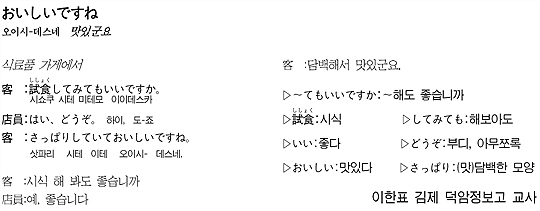 おいしいですね
오이시-데스네 맛있군요
식료품 가게에서
ししょく
客 :試食してみてもいいですか。
시쇼쿠 시테 미테모 이이데스카
店員:はい、どうぞ。 하이, 도-죠
客 :さっぱりしていておいしいですね。
삿파리 시테 이테 오이시- 데스네.
客 :시식 해 봐도 좋습니까
店員:예, 좋습니다
客 :담백해서 맛있군요.
▷~てもいいですか:~해도 좋습니까
ししょく
▷試食:시식 ▷してみても:해보아도
▷いい:좋다 ▷どうぞ:부디, 아무쪼록
▷おいしい:맛있다 ▷さっぱり:(맛)담백한 모양
이한표 김제 덕암정보고 교사